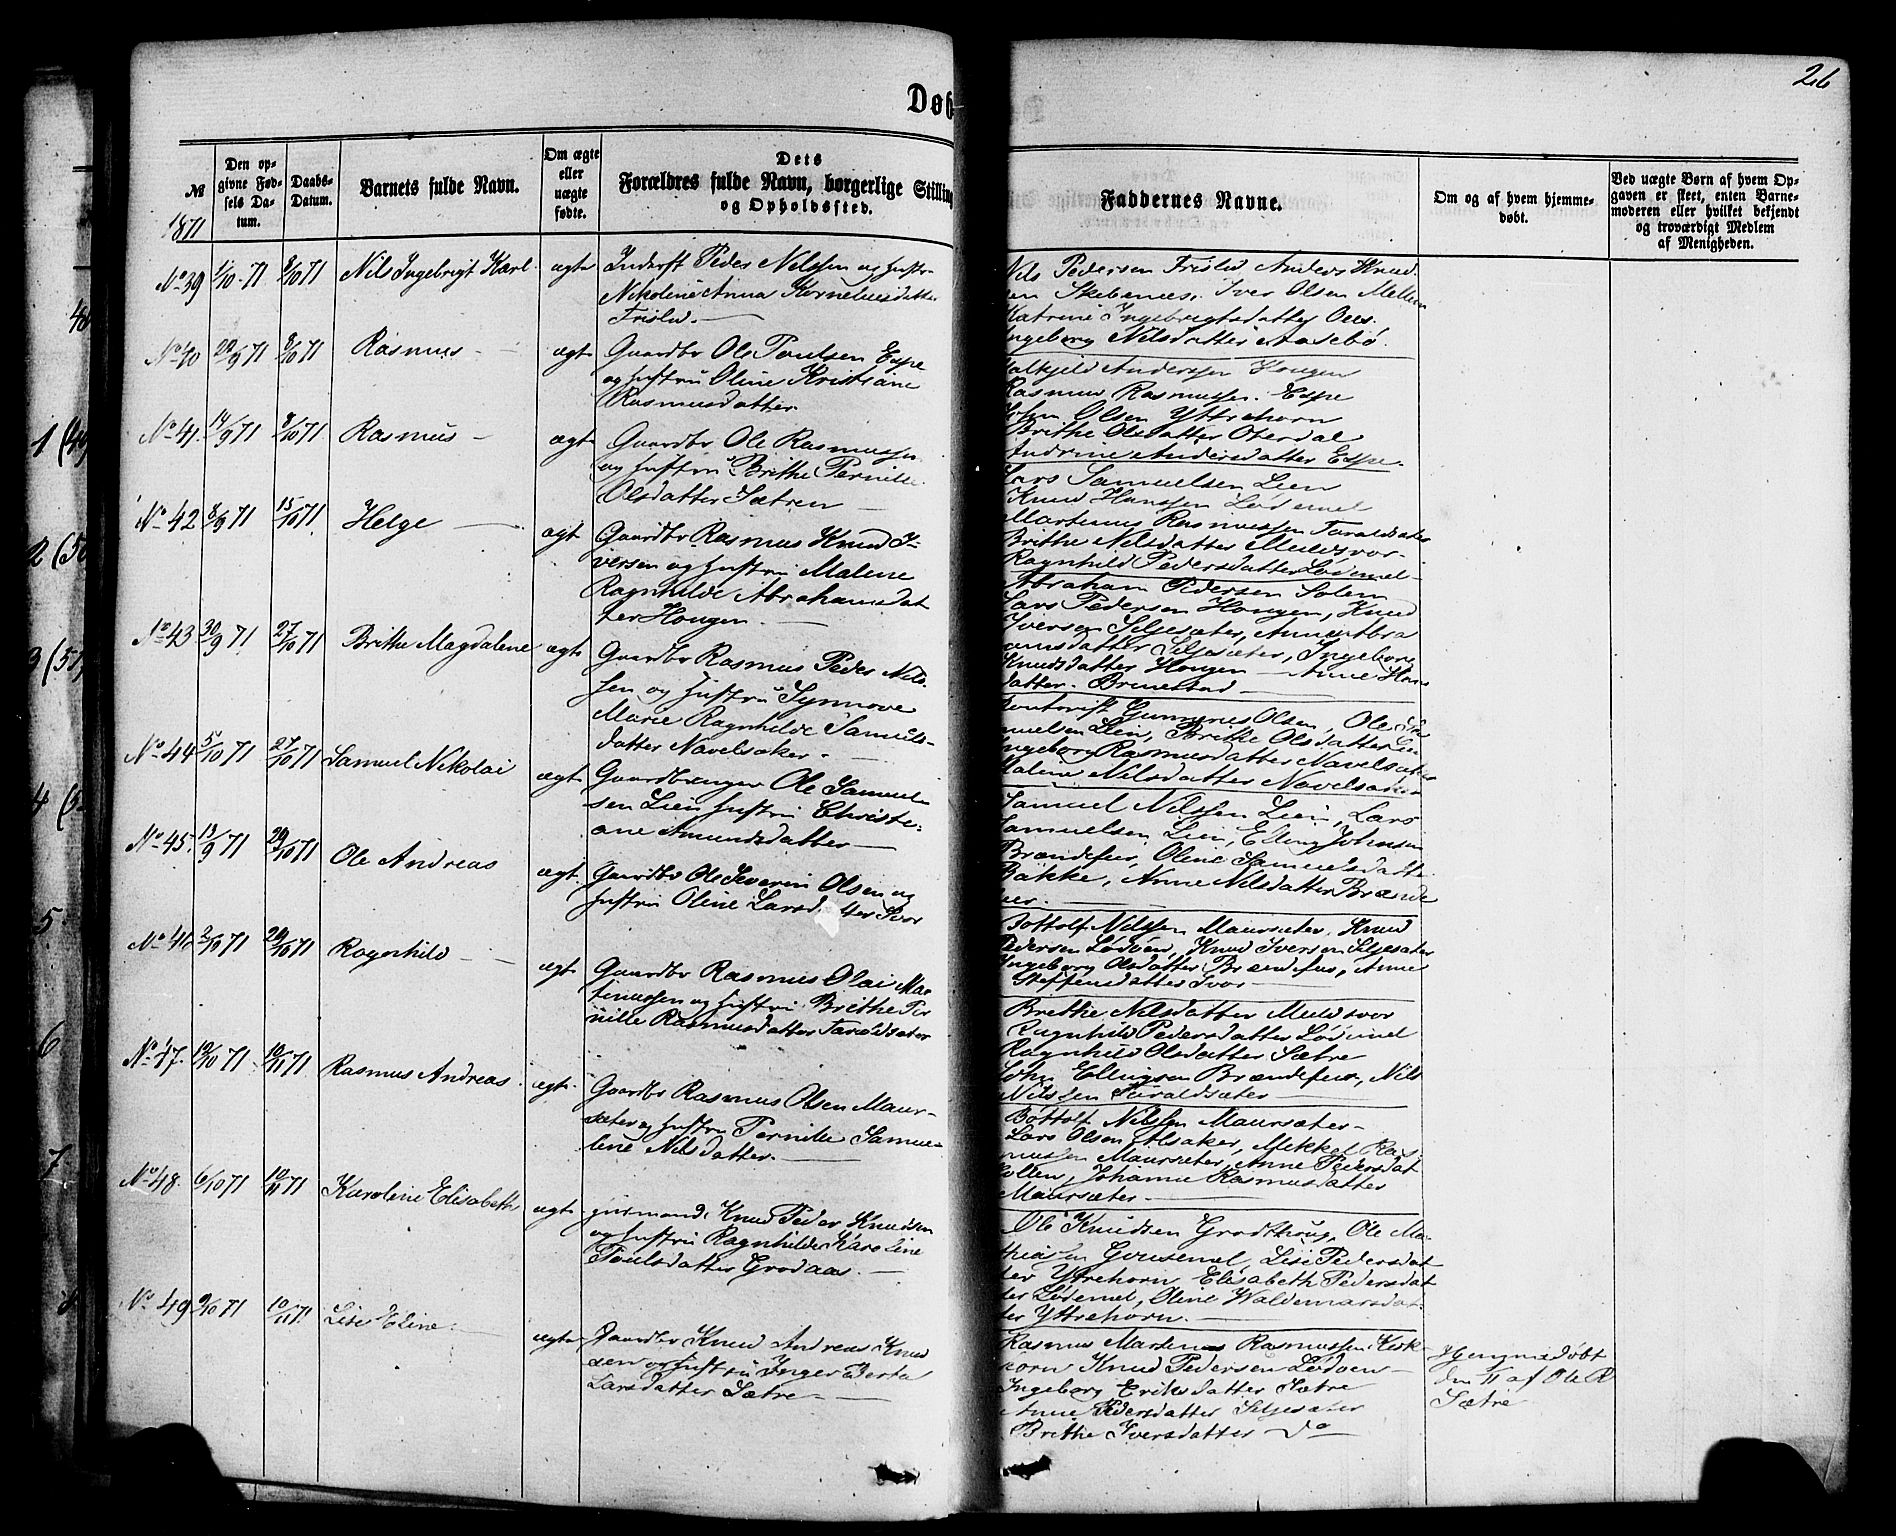 26
Døb
№
1871
Den op-
givne Fød-
sels Da-
tum.
Daabs-
Datum.
Barnets fulde Navn.
Om ægte
eller
uægte
fødte.
Dets
Forældres fulde Navn, borgerlige Stilling
og Opholdssted.
Faddernes Navne.
Om og af hvem hjemme-
døbt.
Ved uægte Børn af hvem Op-
gaven er skeet, enten Barne-
moderen eller hvilket bekjendt
og troværdigt Medlem
af Menigheden.
No 39 1/10 71 8/10 71 Nils Ingebrigt Karl ægte
Inderst Peder Nilssen og hustru
Nikoline Anna Korneliusdatter
Frislid. —
Nils Pedersen Frislid Anders Knud
sen Skebenes. Iver Olsen Mellem
Katrine Ingebrigtsdatter Oees.
Ingeborg Nilsdatter Aasebø.
No 40 29/9 71 8/10 71 Rasmus — ægte
Gaardbr Ole Poulsen Espe
og hustru Oline Kristiane
Rasmusdatter
Halkjeld Anderssen Hougen
Rasmus Rasmussen. Espe
John Olsen Yttrehorn
Brithe Olsdatter Oterdal
Andrine Andersdatter Espe.
No 41. 14/9 71 8/10 71 Rasmus — ægte
Gaardbr Ole Rasmussen
og hustru Brithe Pernille
Olsdatter Sætren —
Lars Samuelsen Lien
Knud Hanssen Lødemel
Martinus Rasmussen Taraldsæter
Brithe Nilsdatter Muldsvor
Ragnhild Pedersdatter Lødemel
No 42 8/9 71 15/10 71 Helge — ægt
Gaardbr Rasmus Knud I-
versen og hustru Malene
Ragnhilde Abrahamsdat
ter Hougen. —
Abraham Pedersen Solem
Lars Pedersen Hougen, Knud
Iversen Seljesæter, Anne Abra
hamsdatter Seljesæter, Ingeborg
Knudsdatter Hougen — Anne Hans
datter. Brunestad —
No 43 30/9 71 27/10 71 Brithe Magdalene ægte
Gaardbr Rasmus Peder Nils-
sen og hustru Synnove
Marie Ragnhilde Samuels-
datter Navelsaker —
Kontorist Gunnerus Olsen, Ole Sa
muelsen Lien, Brithe Olsdatter Lien
Ingeborg Rasmusdatter Navelsaker
Malene Nilsdatter Navelsaker
No 44 5/10 71 27/10 71 Samuel Nikolai ægte
Gaardbruger Ole Samuel-
sen Lien hustru Christi-
ane Amundsdatter —
Samuel Nilssen Lien, Lars
Samuelsen Lien, Elling Johnsen
Brændefur, Oline Samuelsdatter
Bakke, Anne Nilsdatter Brænde
fur. —
No 45. 13/9 71 29/10 71 Ole Andreas ægt
Gaardbr Ole Severin Olsen og
hustru Oline Larsdatter Svor
Bottolf Nilssen Maursæter, Knud
Pedersen Lødøen, Knud Iversen Seljesæter
Ingeborg Olsdatter Brændefur, Anne
Steffensdatter Svor —
No 46 2/10 71 29/10 71 Ragnhild — ægt
Gaardbr Rasmus Olai Mar
tinussen og hustru Brithe Per
nille Rasmusdatter Taraldsæter
Brithe Nilsdatter Muldsvor
Ragnhild Pedersdatter Lødemel
Ragnhild Olsdatter Sætre
John Ellingsen Brændefur, Nils
Nilssen Taraldsæter —
No 47. 19/10 71 10/11 71 Rasmus Andreas. ægt.
Gaardbr Rasmus Olsen Maur-
sæter og hustru Pernille Samue-
lene Nilsdatter. —
Bottolf Nilssen Maursæter —
Lars Olsen Alsaker, Mikkel Ras
mussen Maursæter, Anne Pedersdat
Holten, Johanne Rasmusdatter
Maursæter —
No 48. 6/10 71 10/11 71 Karoline Elisabeth ægte
Knud Peder Knudsen
og hustru Ragnhilde Karoline
Poulsdatter Grodaas. —
Ole Knudsen Grodthoug, Ole Ma-
Lise Pedersdat
ter Yttrehorn, Elisabeth Pedersdat
ter Lødemel, Oline Waldemarsdat
ter Yttrehorn. —
No 49 9/10 71 10/11 71. Lise Eline. — ægte
Gaardbr Knud Andreas Knud
sen og hustru Inger Berta
Larsdatter Sætre —
Rasmus Martinus Rasmussen Kirk-
horn Knud Pedersen Lødøen —
Ingeborg Eriksdatter Sætre
Anne Pedersdatter Seljesæter
Brithe Iversdatter Do
Hjemmedøbt
den af Ole R
Sætre
1 (49
2 (50
3 (51)
4 (5
5
6
7